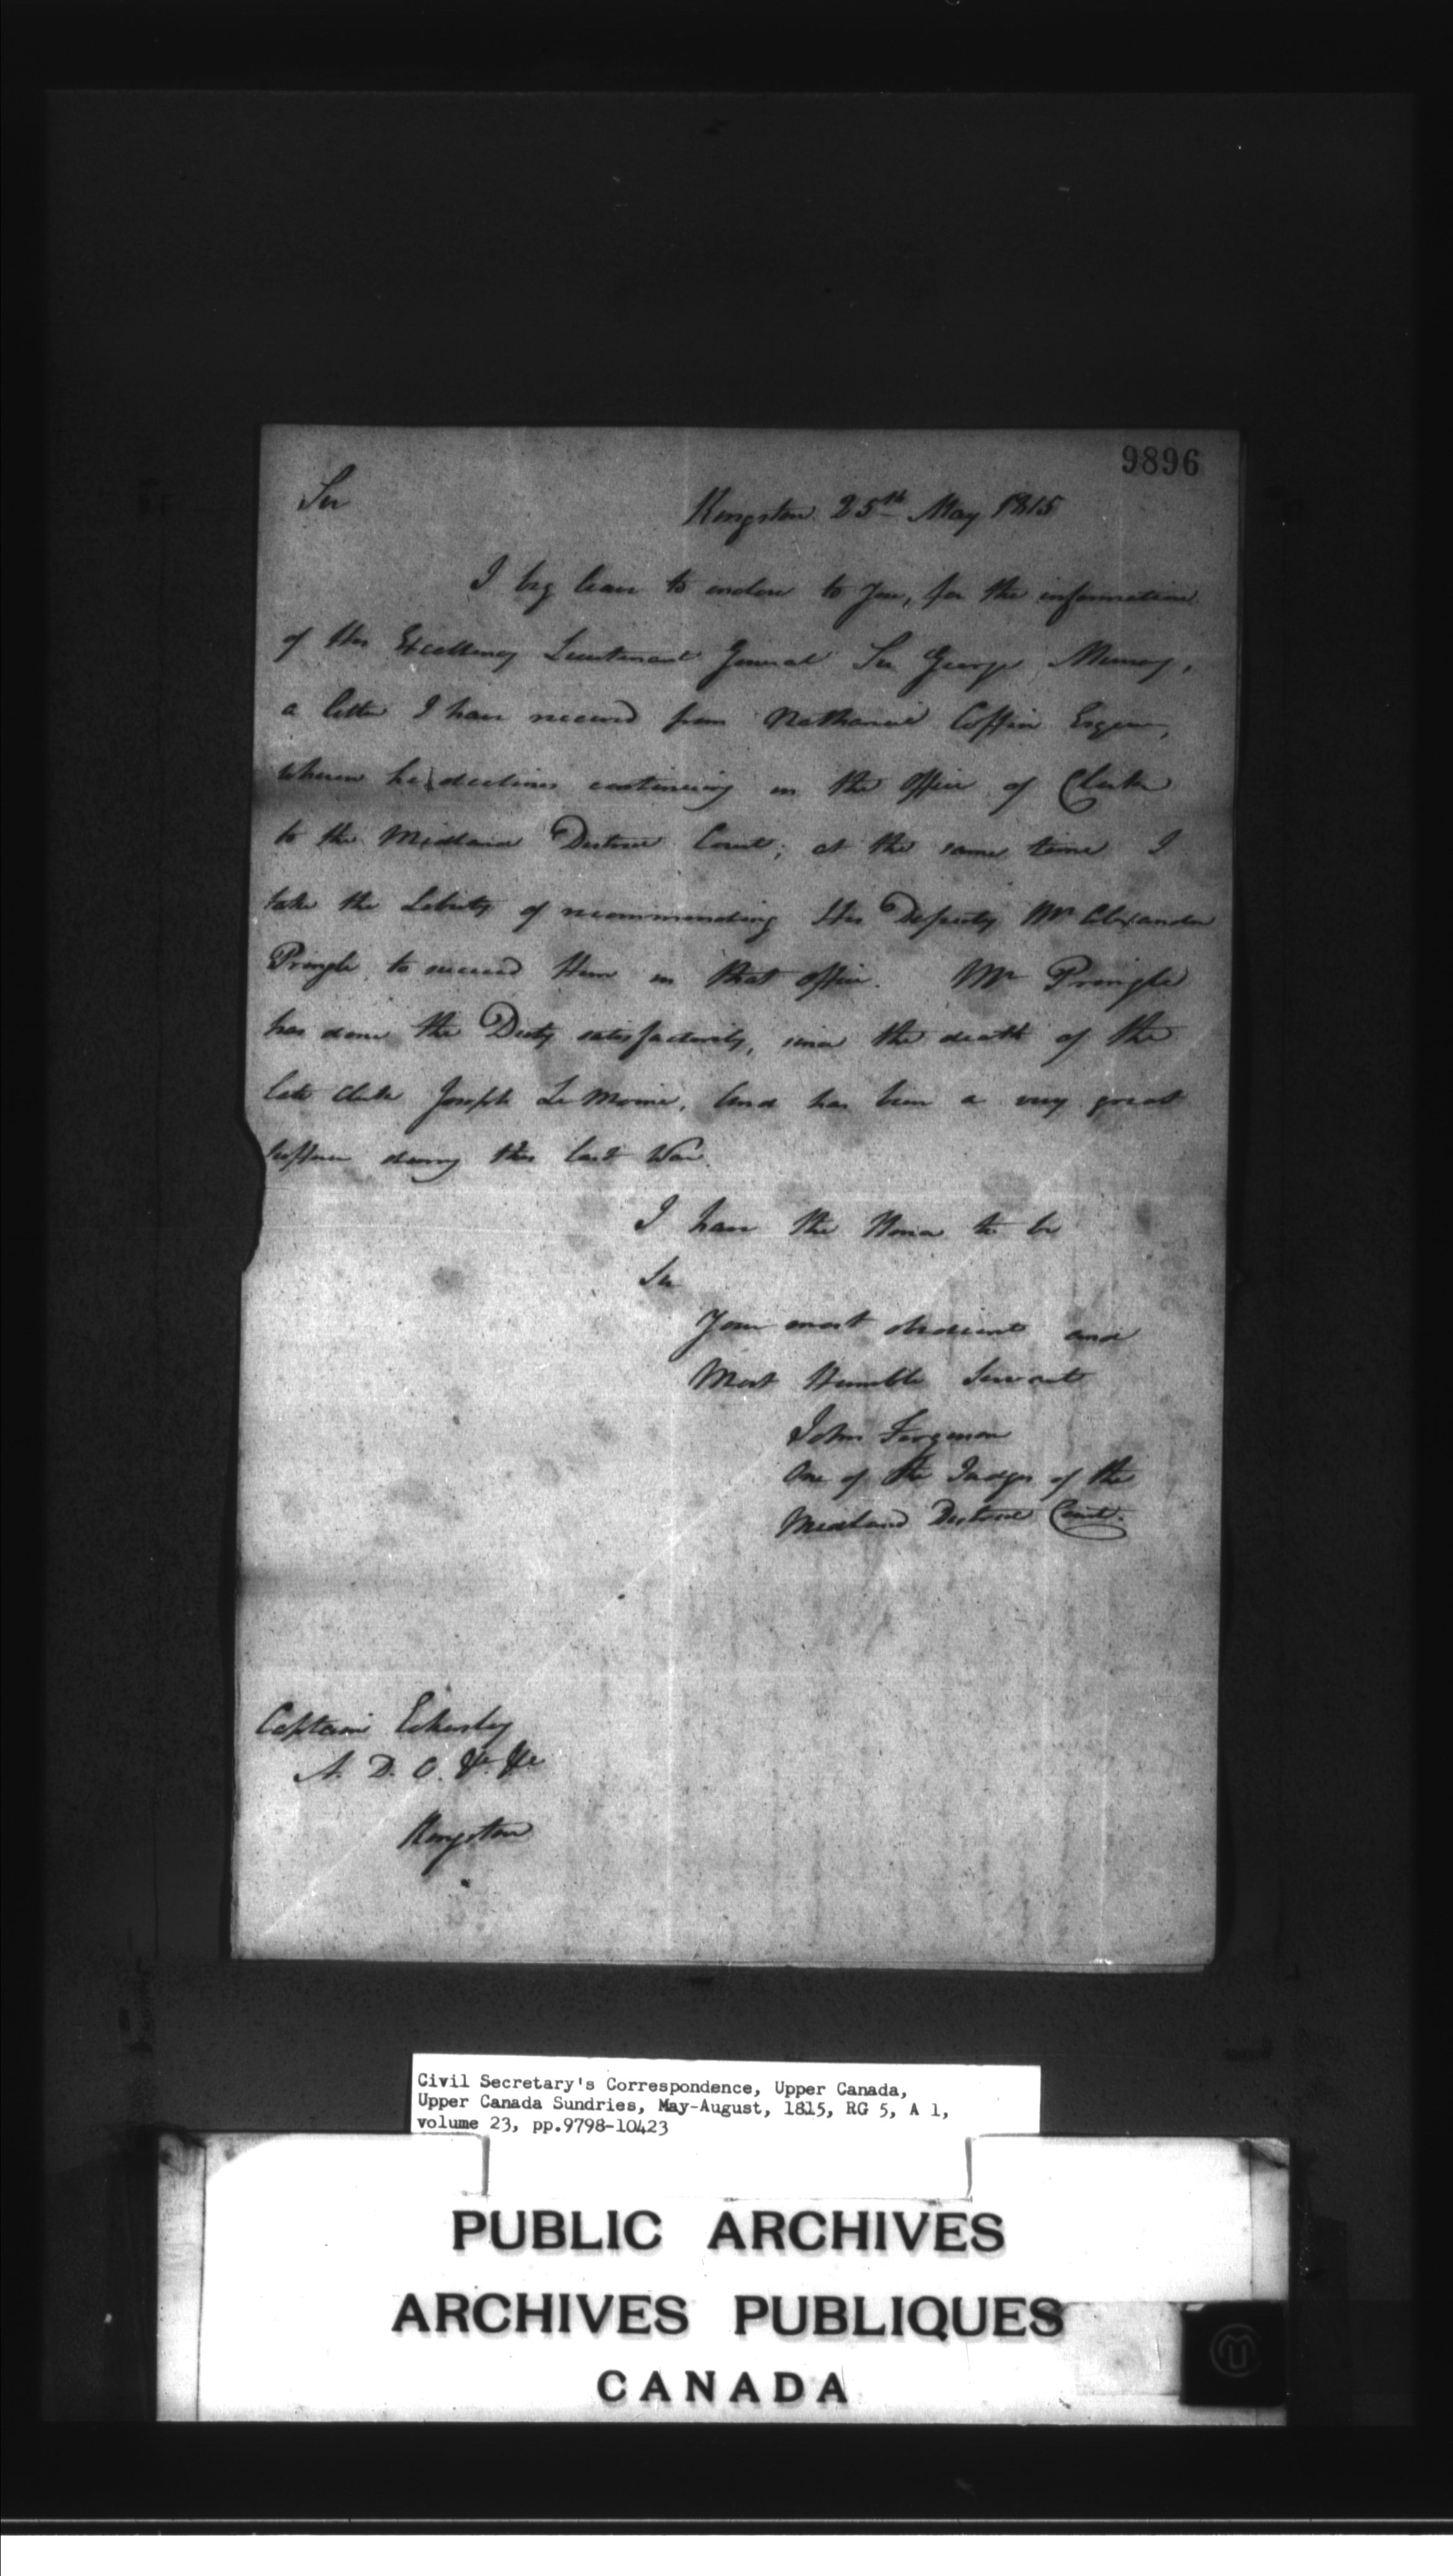 9896
Sir
Kingston 25th May 1815
I beg leave to enclose to You, for the information
of His Excellency Lieutenant General Sir George Murray,
a letter I have received from Nathaniel Coffin Esquire,
wherein he declines continuing in the Office of Clerk
to the Midland District Court; at the same time I
take the Liberty of recommending His Deputy Mr Alexander
Pringle to succeed Him in that Office. Mr Pringle
has done the Duty satisfactorily, since the death of the
late Clerk Joseph Le Moine, And has been a very great
sufferer during this last War.
I have the Honor to be
Sir
Your most obedient and
Most Humble Servant
John Ferguson
One of the Judges of the
Midland District Court.
Captain Eckersley
A. D. C. &c &c
Kingston
Civil Secretary's Correspondence, Upper Canada,
Upper Canada Sundries, May-August, 1815, RG 5, A 1,
volume 23, pp.9798-10423
PUBLIC ARCHIVES
ARCHIVES PUBLIQUES
CANADA